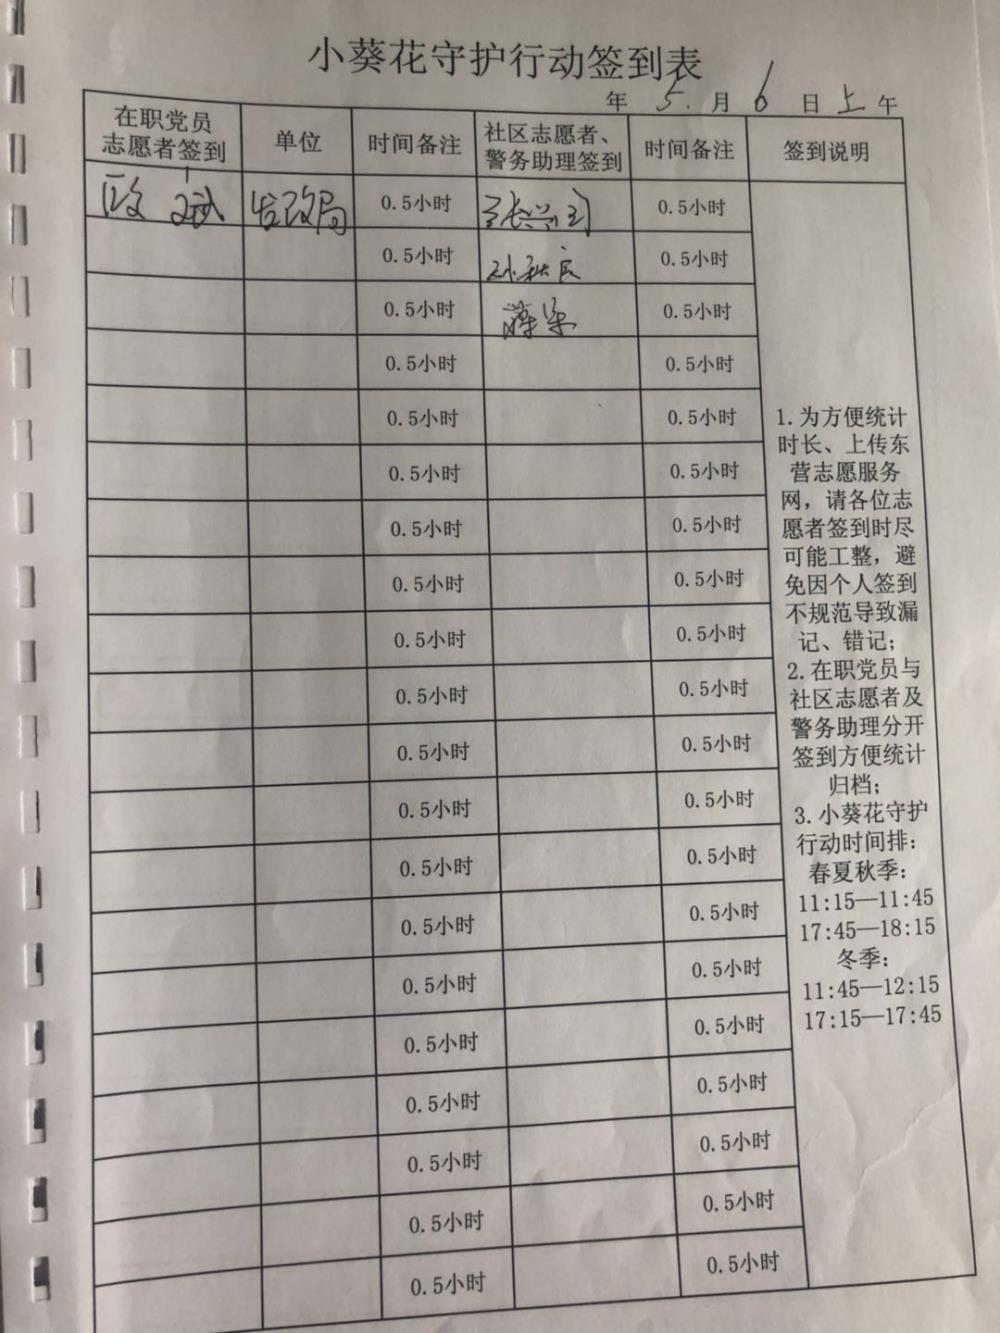 小葵花守护行动签到表
年 5. 月 6 日 上 午
在职党员
志愿者签到
单位
时间备注
社区志愿者、
警务助理签到
时间备注
签到说明
发改局
0.5小时
0.5小时
0.5小时
孙秋良
0.5小时
0.5小时
0.5小时
0.5小时
0.5小时
0.5小时
0.5小时
0.5小时
0.5小时
0.5小时
0.5小时
0.5小时
0.5小时
0.5小时
0.5小时
0.5小时
0.5小时
0.5小时
0.5小时
0.5小时
0.5小时
0.5小时
0.5小时
0.5小时
0.5小时
0.5小时
0.5小时
0.5小时
0.5小时
0.5小时
0.5小时
0.5小时
0.5小时
0.5小时
0.5小时
0.5小时
0.5小时
1.为方便统计
时长、上传东
营志愿服务
网,请各位志
愿者签到时尽
可能工整,避
免因个人签到
不规范导致漏
记、错记;
2.在职党员与
社区志愿者及
警务助理分开
签到方便统计
归档;
3.小葵花守护
行动时间排:
春夏秋季:
11:15—11:45
17:45—18:15
冬季:
11:45—12:15
17:15—17:45